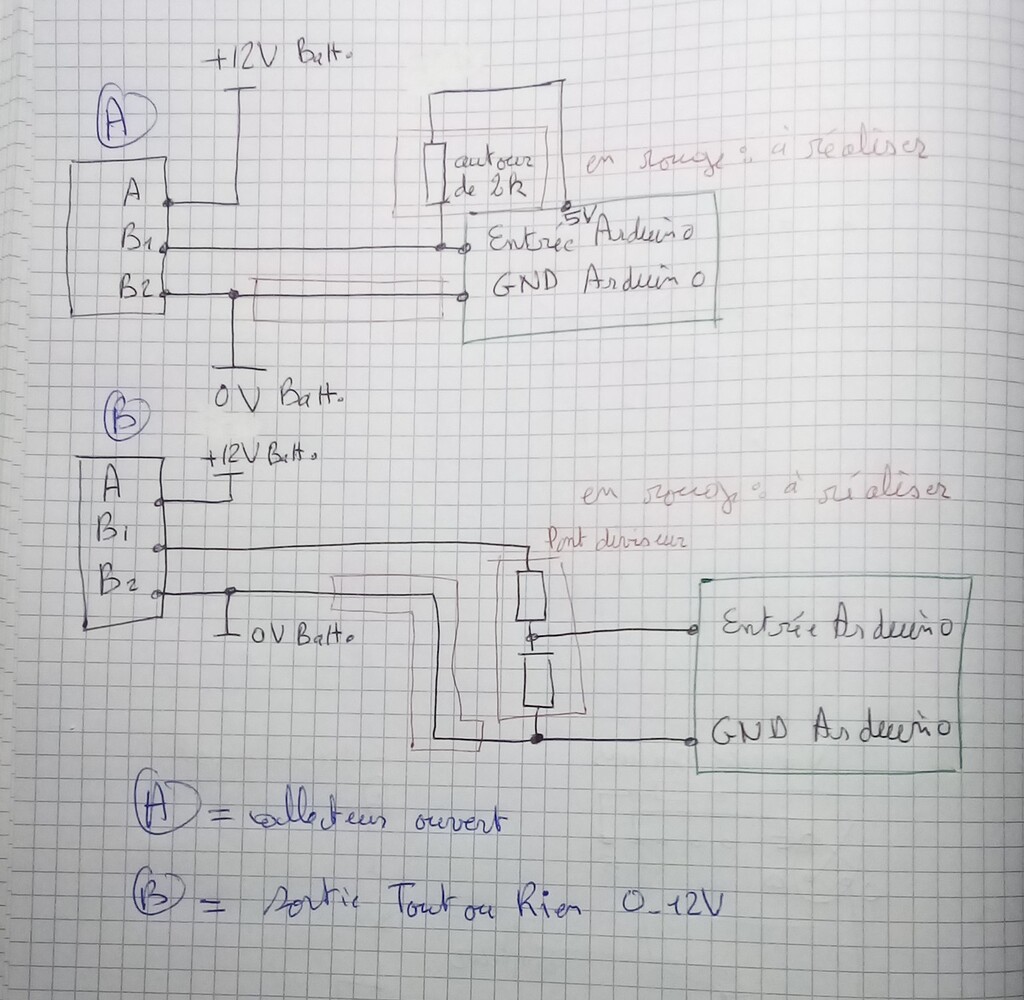 +12V Batt.
A
A
B1
B2
autour
de 2k
en rouge : à réaliser
5V
Entrée Arduino
GND Arduino
0V Batt.
B
+12V Batt.
A
B1
B2
en rouge : à réaliser
Pont diviseur
0V Batt.
Entrée Arduino
GND Arduino
A = collecteur ouvert
B = sortie Tout ou Rien 0-12V